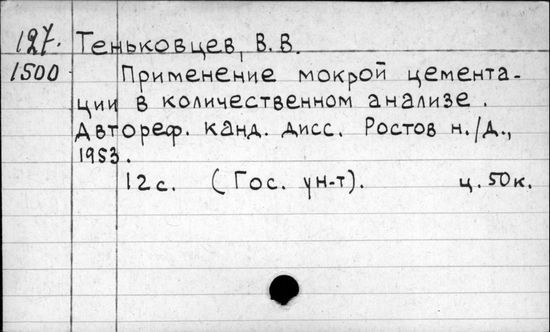 127. Теньковцев, В.В.
1500 Применение мокрой цемента-
ции в количественном анализе.
Автореф. канд. дисс. Ростов н./Д.,
1953.
12 с. (Гос. ун-т). ц. 50 к.